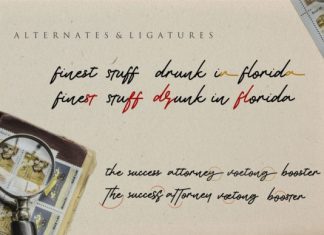 ALTERNATES & LIGATURES
finest stuff drunk in florida
finest stuff drunk in florida
the success attorney voetong booster
The success attorney voetong booster